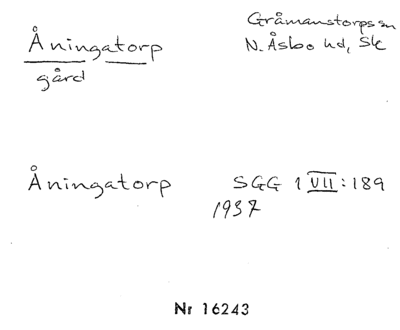 Åningatorp
gård
Gråmanstorps sn
N. Åsbo hd, Sk
Åningatorp
SGG 1 VII:189
1937
Nr 16243